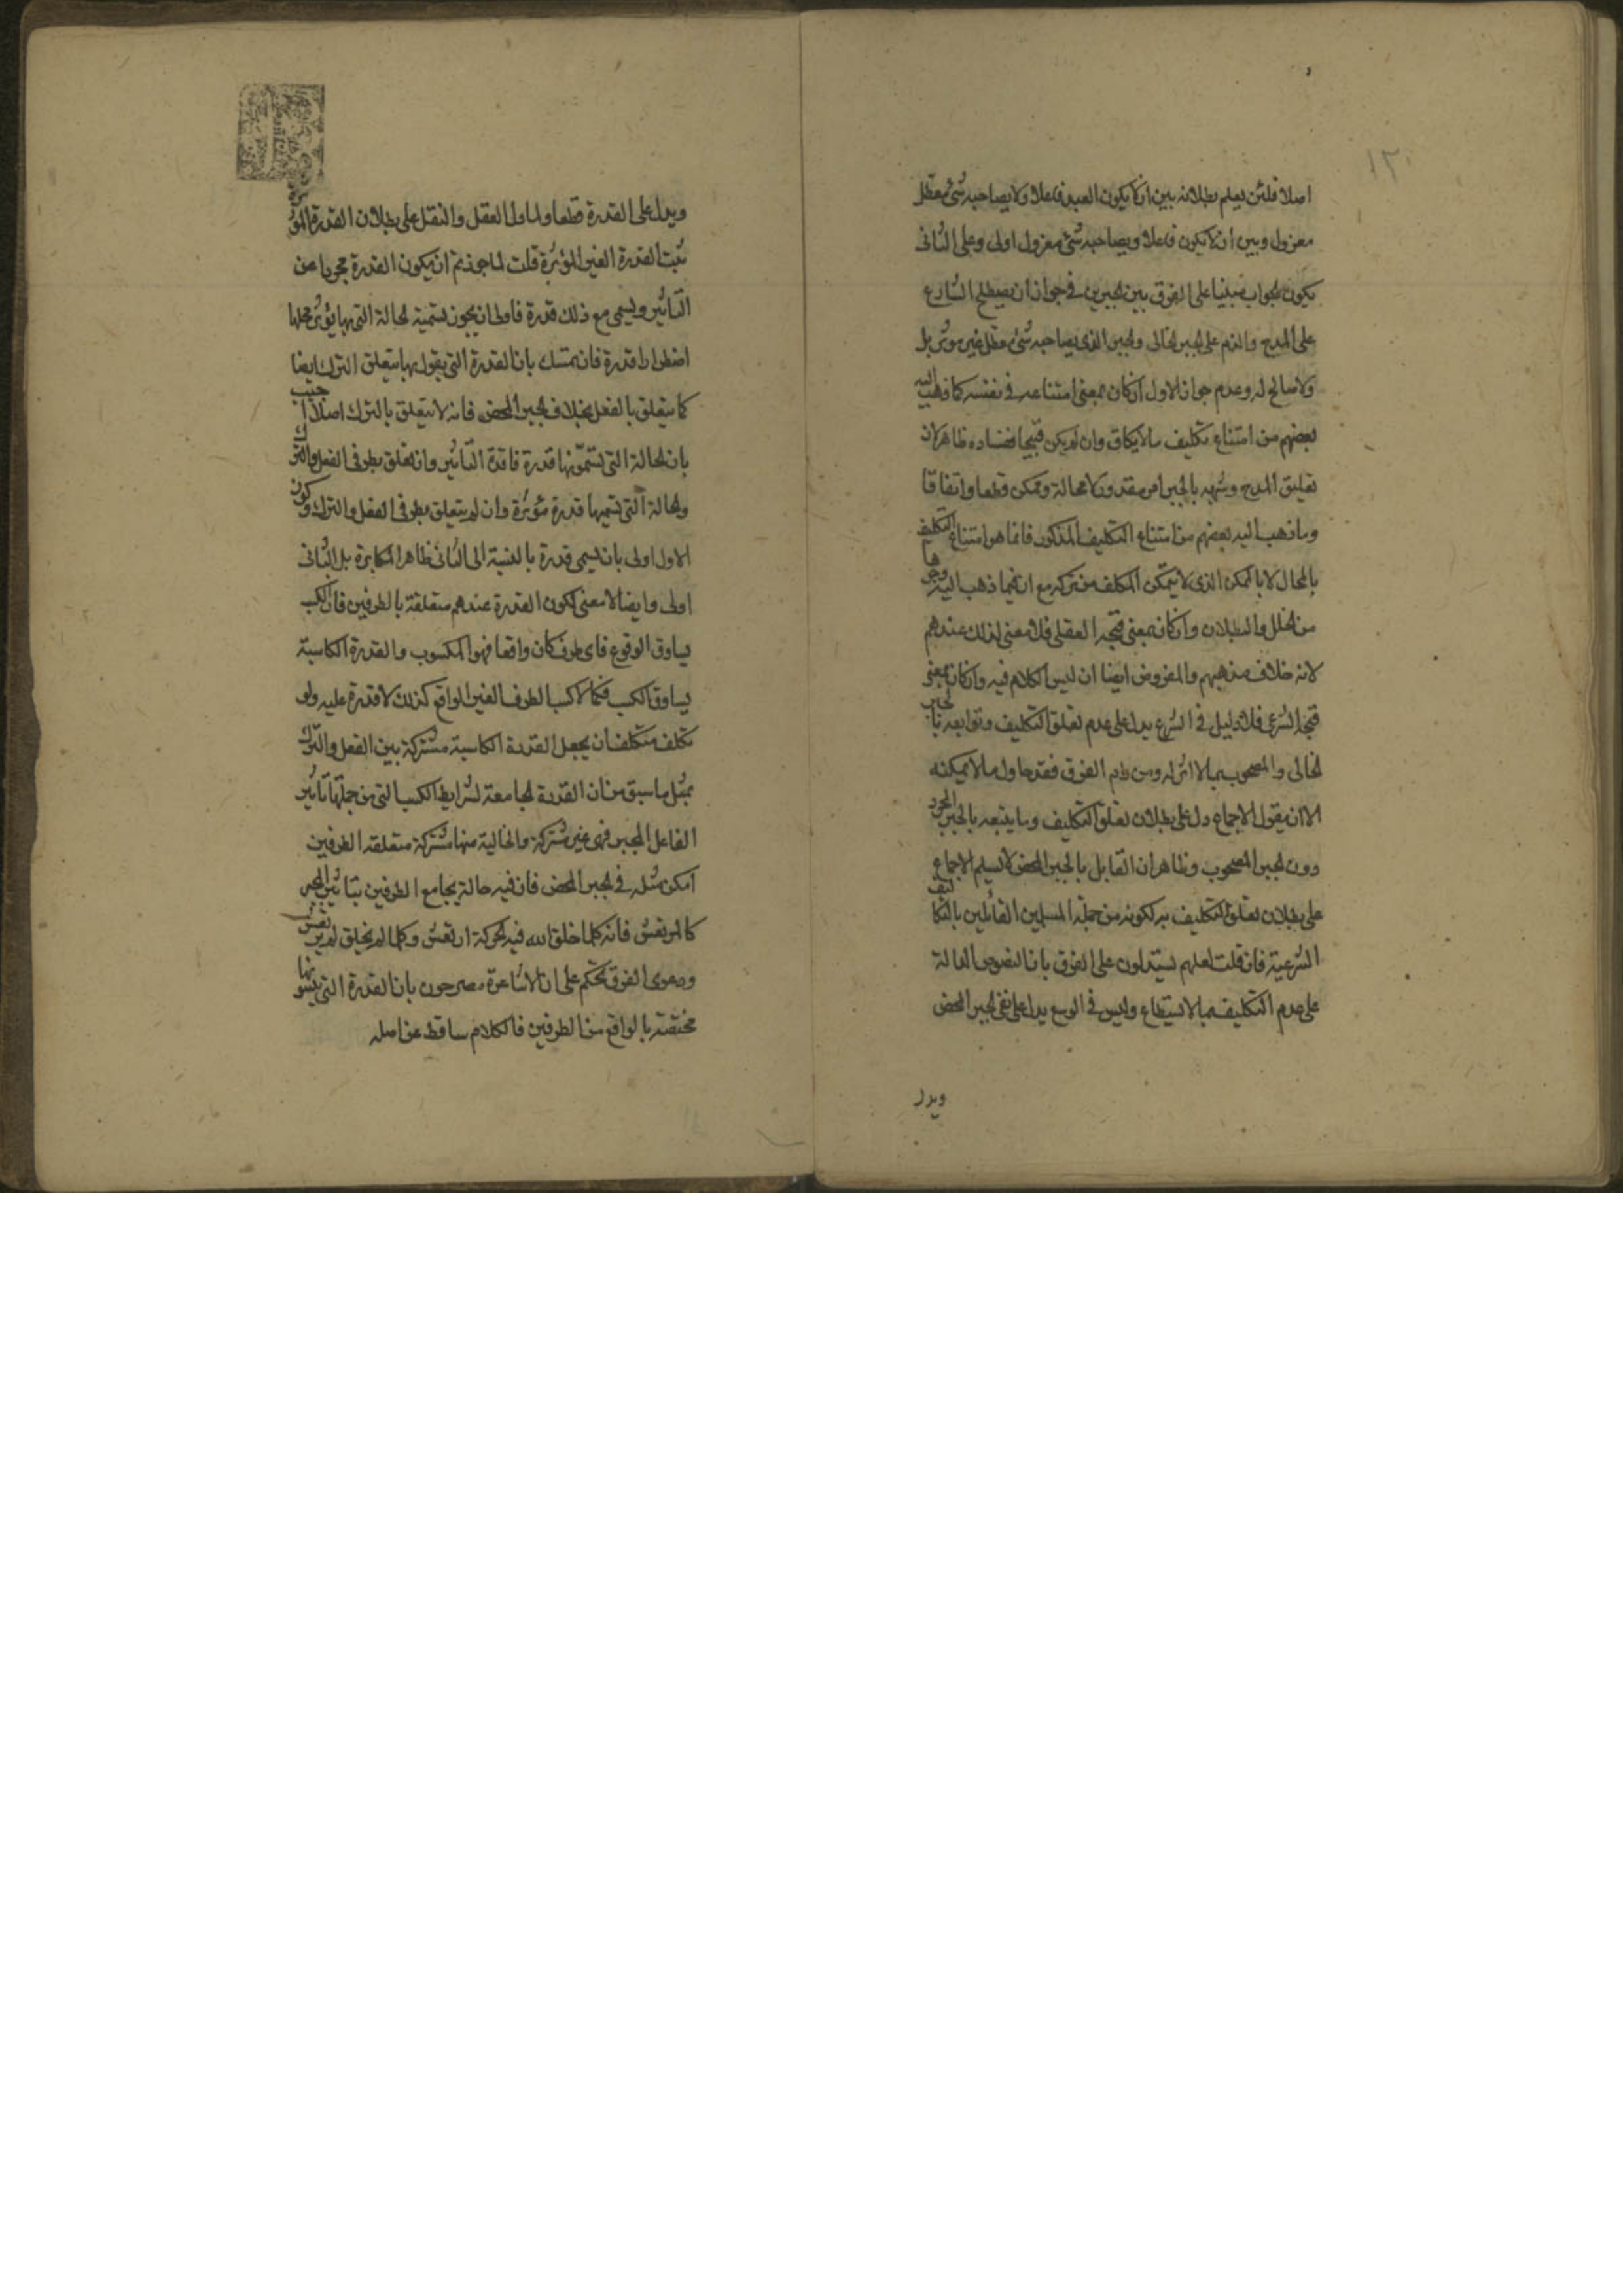 ١٣
اصلا فلئن يعلم بطلانه بين ان لا يكون العبد فاعلا ولا يصاحبه شئ معطل
معزول وبين ان لا يكون فاعلا ويصاحبه شئ معزول اولى وعلى الثانى
يكون الجواب مبنيا على الفرق بين الجبرين فى جواز ان يصطلح الشارع
على المدح والذم على الجبر الخالى والجبر الذى يصاحبه شئ معطل غير موثر بل
ولا صالح له وعدم جواز الاول ان كان بمعنى امتناعه فى نفسه كما ذهب اليه
بعضهم من امتناع تكليف ما لا يطاق وان لم يكن قبيحا ففساده ظاهر لان
تعليق المدح وشبهه بالجبر امر مقدور لا محالة وممكن قطعا واتفاقا
وما ذهب اليه بعضهم من امتناع التكليف المذكور فانما هو امتناع التكليف
بالمحال لا بالممكن الذى لا يتمكن المكلف من تركه مع ان فيما ذهب اليه وجوها
من الخلل والبطلان وان كان بمعنى قبحه العقلى فلا معنى لذلك عندهم
لانه خلاف مذهبهم والمفروض ايضا ان ليس الكلام فيه وان كان بمعنى
قبحه الشرعى فلا دليل فى الشرع يدل على عدم تعلق التكليف وتوابعه بالجبر
الخالى والمصحوب بما لا اثر له ومن رام الفرق فقد حاول ما لا يمكنه
الا ان يقول الاجماع دل على بطلان تعلق التكليف وما يتبعه بالجبر المجرد
دون الجبر المصحوب وظاهر ان القايل بالجبر المحض لا يسلم الاجماع
على بطلان تعلق التكليف به لكونه من جملة المسلمين القائلين بالتكاليف
الشرعية فان قلت لعلهم يستدلون على الفرق بان النصوص الدالة
على عدم التكليف بما لا يستطاع وليس فى الوسع يدل على نفى الجبر المحض
ويدل
ويدل على القدرة قطعا ولما دل العقل والنقل على بطلان القدرة المؤثرة
ثبت القدرة الغير المؤثرة قلت لما جوزتم ان يكون القدرة مجردا عن
التاثير ويسمى مع ذلك قدرة فاولى ان يجوز تسمية الحالة التى بها يؤثر محلها
اضطرارا قدرة فان تمسك بان القدرة التى يقول بها يتعلق الترك ايضا
كما يتعلق بالفعل بخلاف الجبر المحض فانه لا يتعلق بالترك اصلا اجيب
بان الحالة التى تسمّونها قدرة فاقدة التاثير وان تعلق بطرفى الفعل والترك
والحالة التى نسميها قدرة مؤثرة وان لم يتعلق بطرفى الفعل والترك وكون
الاول اولى بان يسمى قدرة بالنسبة الى الثانى ظاهر المكابرة بل الثانى
اولى وايضا لا معنى لكون القدرة عندهم متعلقة بالطرفين فان الكسب
يساوق الوقوع فاى طرف كان واقعا فهو المكسوب والقدرة الكاسبة
يساوق الكسب فكما لا كسب لطرف الغير الواقع كذلك لا قدرة عليه ولو
تكلف متكلف ان يجعل القدرة الكاسبة مشتركة بين الفعل والترك
بمثل ما سبق من ان القدرة الجامعة لشرايط الكسب التى من جملتها تاثير
الفاعل المجبر فهى غير مشتركة والخالية منها مشتركة متعلقة الطرفين
امكن مثله فى الجبر المحض فان فيه حالة يجامع الطرفين بتاثير المجبر
كالمرتعش فانه كلما خلق الله فيه الحركة ارتعش وكلما لم يخلق لم يرتعش
ودعوى الفرق تحكم على ان الاشاعرة مصرحون بان القدرة التى يثبتونها
مختصة بالواقع من الطرفين فالكلام ساقط عن اصله